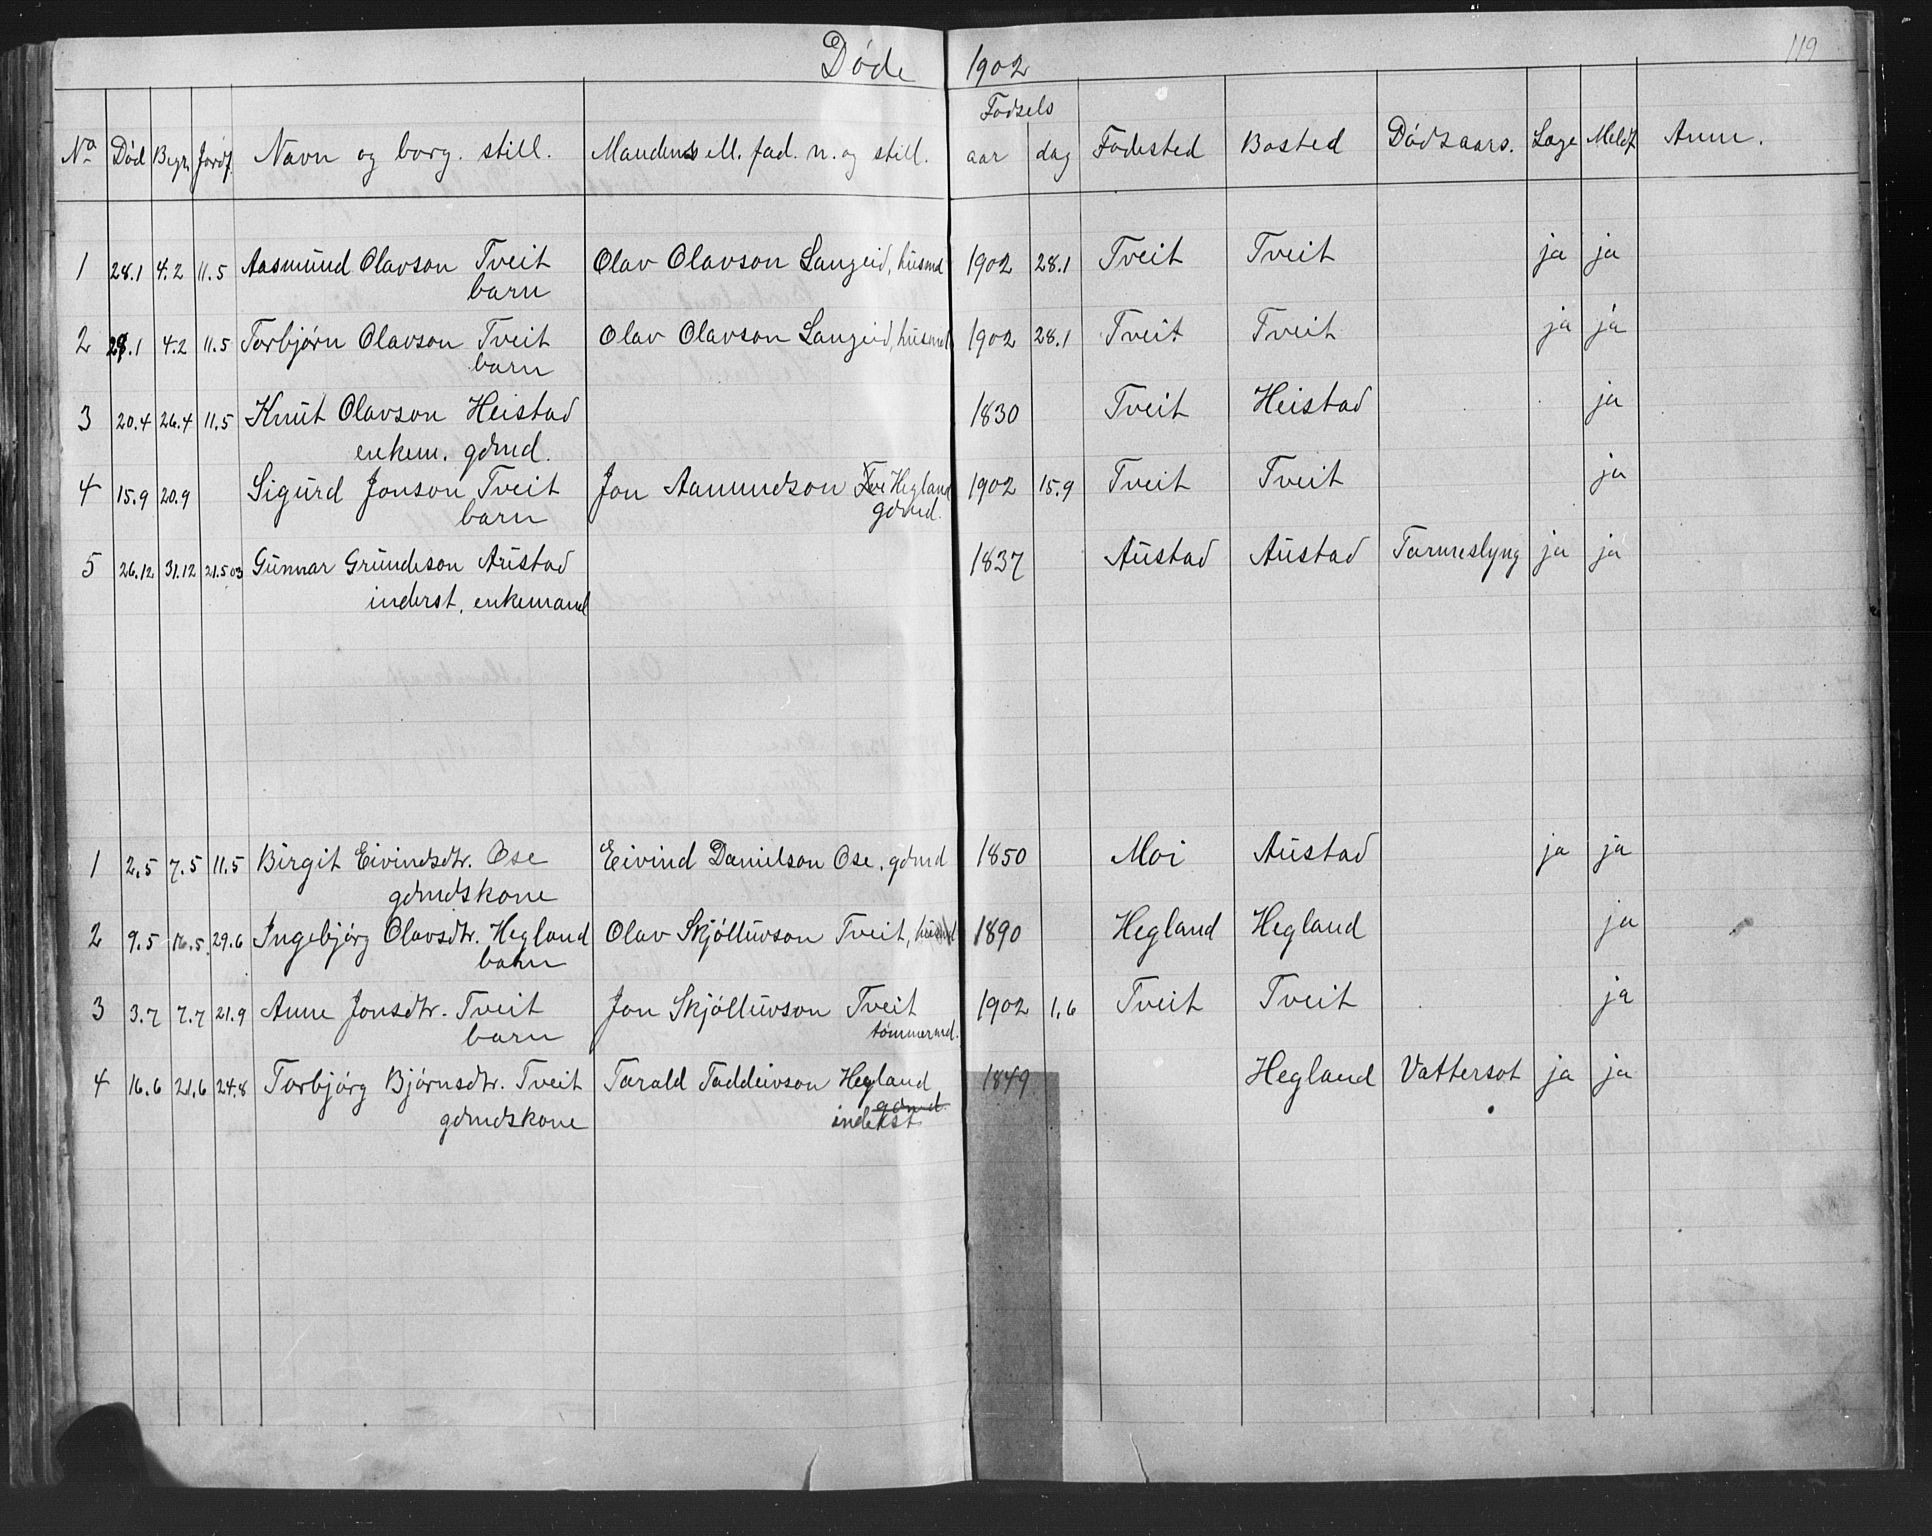 Døde 1902
119
Fødsels
No Død Begr. Jordf. Navn og borg. still. Mandens ell. fad. n. og still. aar dag Fødested Bosted Dødsaars. Læge Meldt Anm.
1 28.1 4.2 11.5 Aasmund Olavson Tveit Olav Olavson Langeid, husmd 1902 28.1 Tveit Tveit ja ja
barn
2 28.1 4.2 11.5 Torbjørn Olavson Tveit Olav Olavson Langeid, husmd 1902 28.1 Tveit Tveit ja ja
barn
3 20.4 26.4 11.5 Knut Olavson Heistad 1830 Tveit Heistad ja
enkem. gdmd.
4 15.9 20.9 Sigurd Jonson Tveit Jon Aamundson Hegland 1902 15.9 Tveit Tveit ja
barn gdmd.
5 26.12 31.12 21.5 03 Gunnar Grundeson Austad 1837 Austad Austad Tarmeslyng ja ja
inderst, enkemand
1 2.5 7.5 11.5 Birgit Eivindsdtr. Ose Eivind Danielson Ose, gdmd 1850 Moi Austad ja ja
gdmdskone
2 9.5 16.5 29.6 Ingebjørg Olavsdtr. Hegland Olav Skjølluvson Tveit, husmd 1890 Hegland Hegland ja
barn
3 3.7 7.7 21.9 Anne Jonsdtr. Tveit Jon Skjølluvson Tveit 1902 1.6 Tveit Tveit ja
barn tømmermd.
4 16.6 21.6 24.8 Torbjørg Bjørnsdtr. Tveit Tarald Taddeivson Hegland 1849 Hegland Vattersot ja ja
gdmd.
gdmdskone inderst